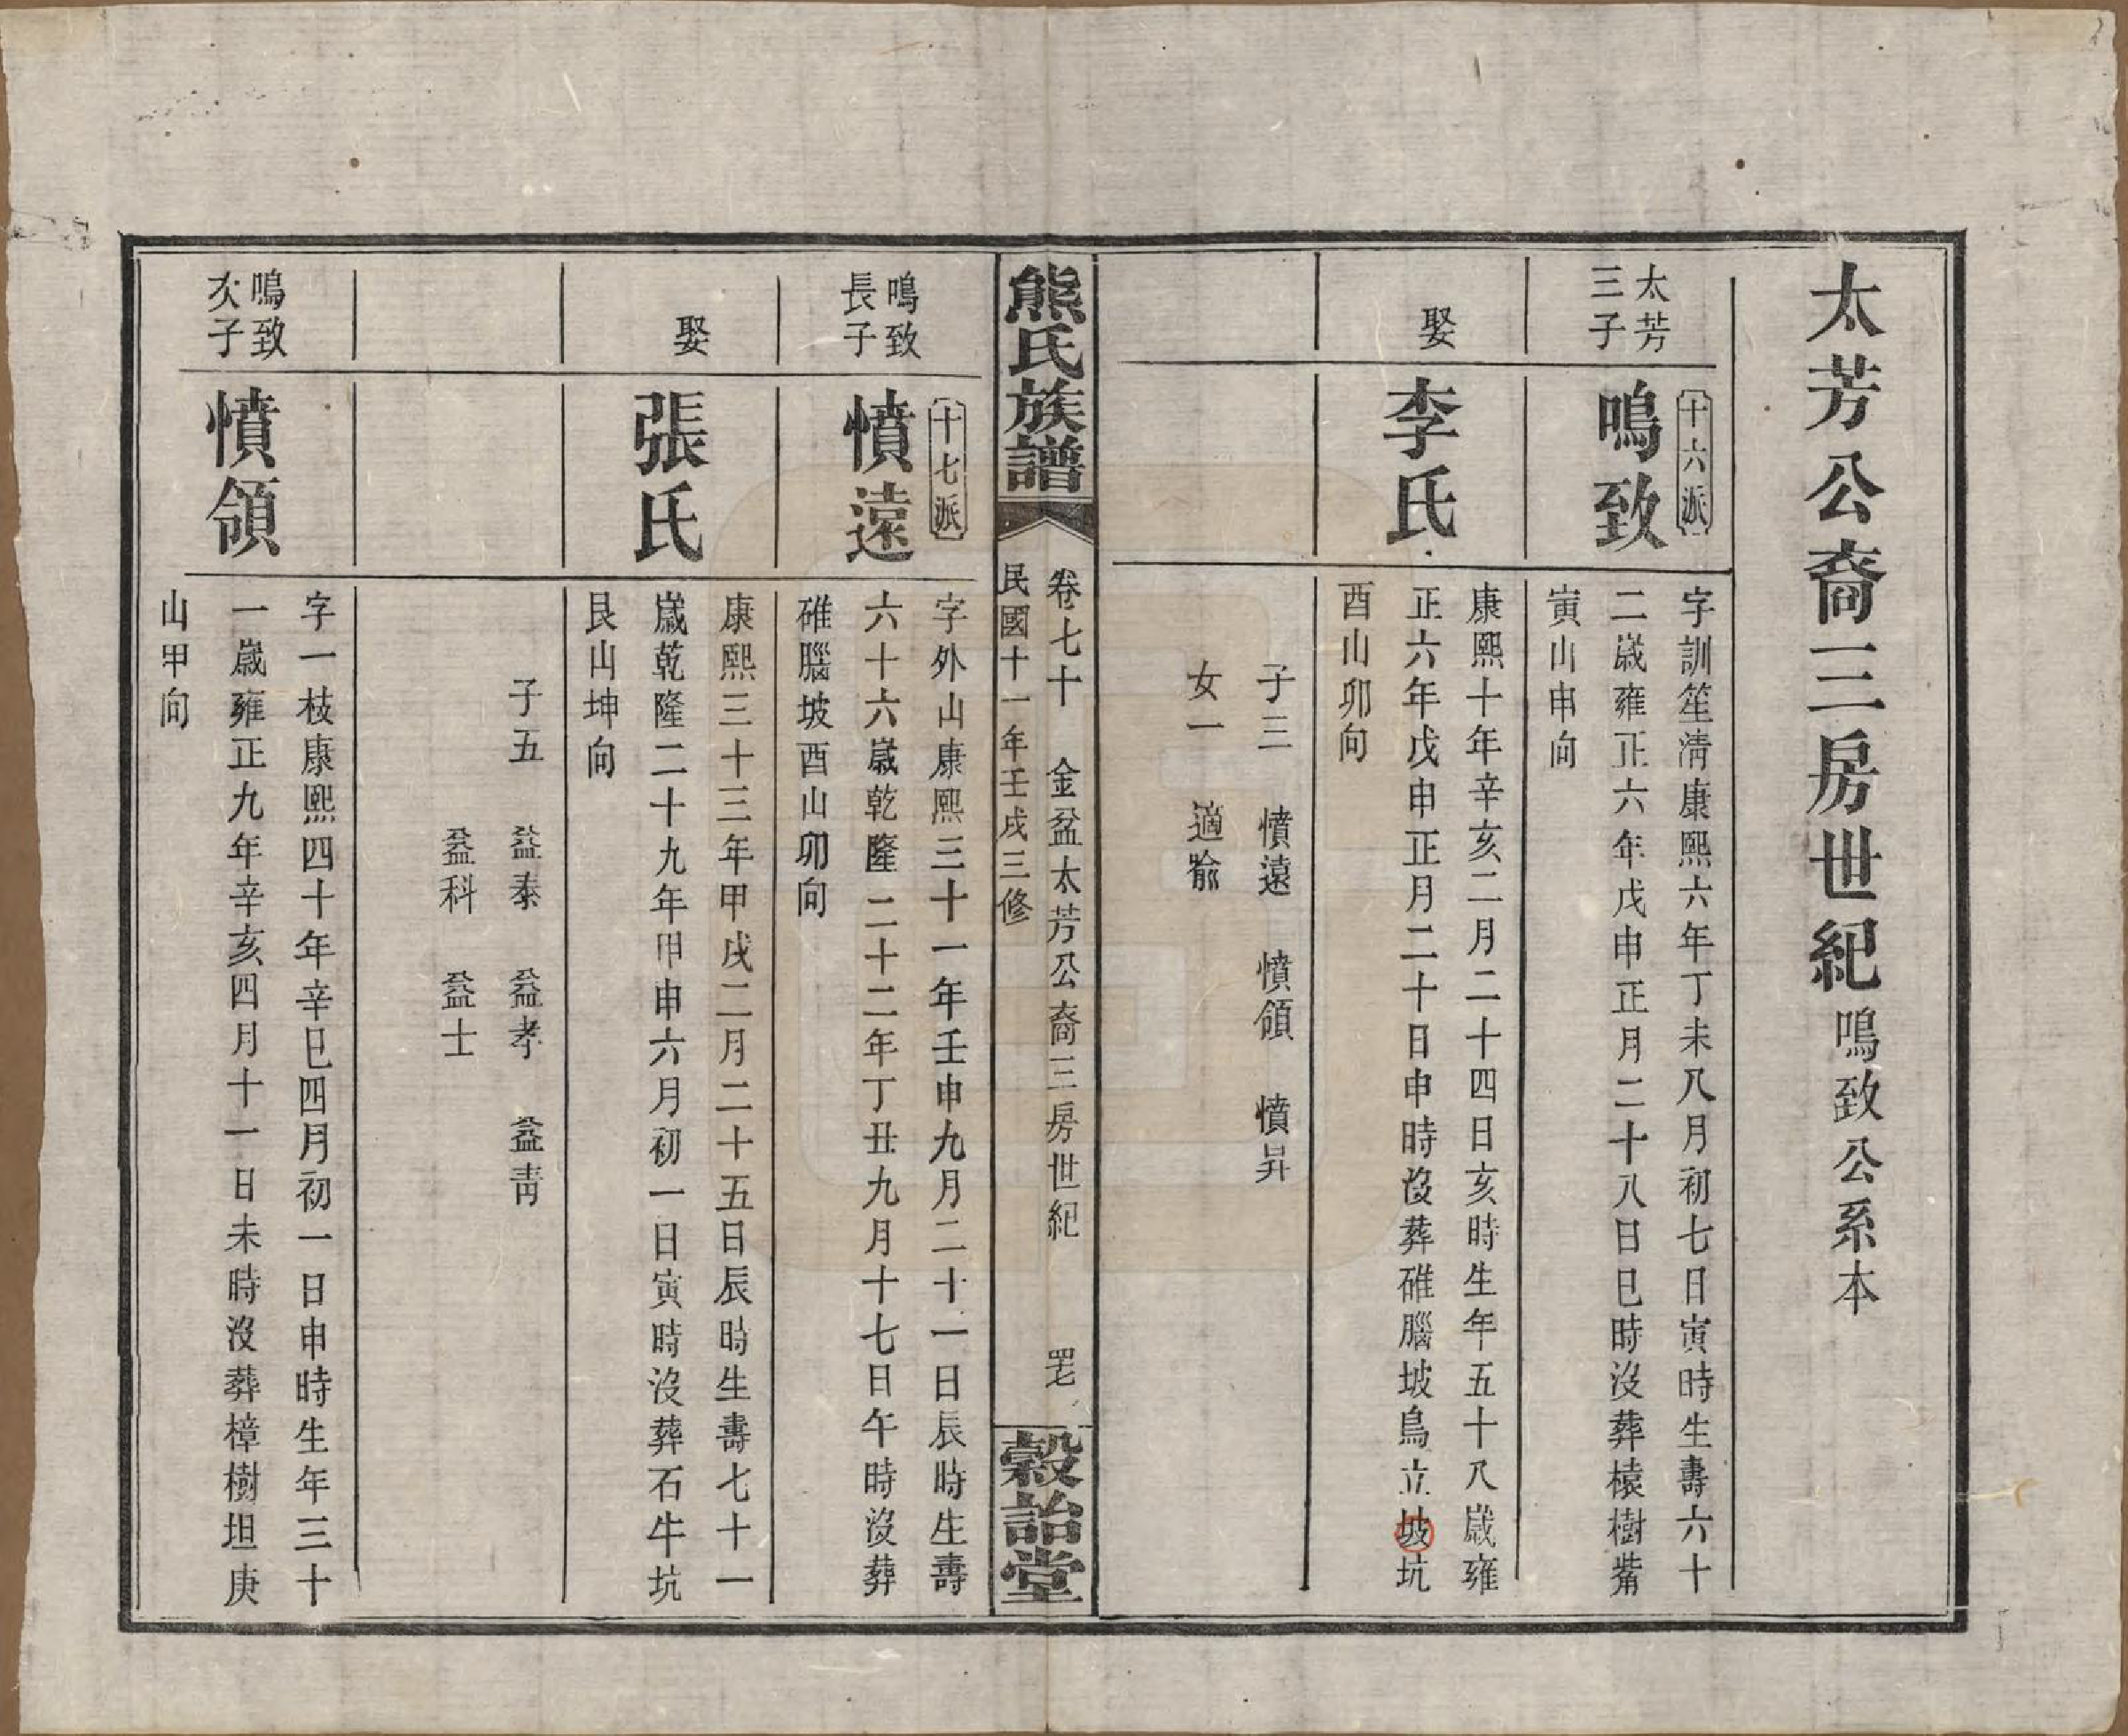 太芳公裔三房世紀鳴致公系本
太芳
三子
十六派
鳴致
字訓笙清康熙六年丁未八月初七日寅時生壽六十
二歲雍正六年戊申正月二十八日巳時沒葬檬樹觜
寅山申向
娶
李氏
康熙十年辛亥二月二十四日亥時生年五十八歲雍
正六年戊申正月二十日申時沒葬碓腦坡鳥立坡坑
酉山卯向
子三 憤遠 憤領 憤昇
女一 適喻
熊氏族譜
卷七十 金盆太芳公裔三房世紀 罕七
民國十一年壬戌三修
穀詒堂
鳴致
長子
十七派
憤遠
字外山康熙三十一年壬申九月二十一日辰時生壽
六十六歲乾隆二十二年丁丑九月十七日午時沒葬
碓腦坡酉山卯向
娶
張氏
康熙三十三年甲戌二月二十五日辰時生壽七十一
歲乾隆二十九年甲申六月初一日寅時沒葬石牛坑
艮山坤向
子五 益泰 益孝 益靑
益科 益士
鳴致
次子
憤領
字一枝康熙四十年辛巳四月初一日申時生年三十
一歲雍正九年辛亥四月十一日未時沒葬樟樹坦庚
山甲向